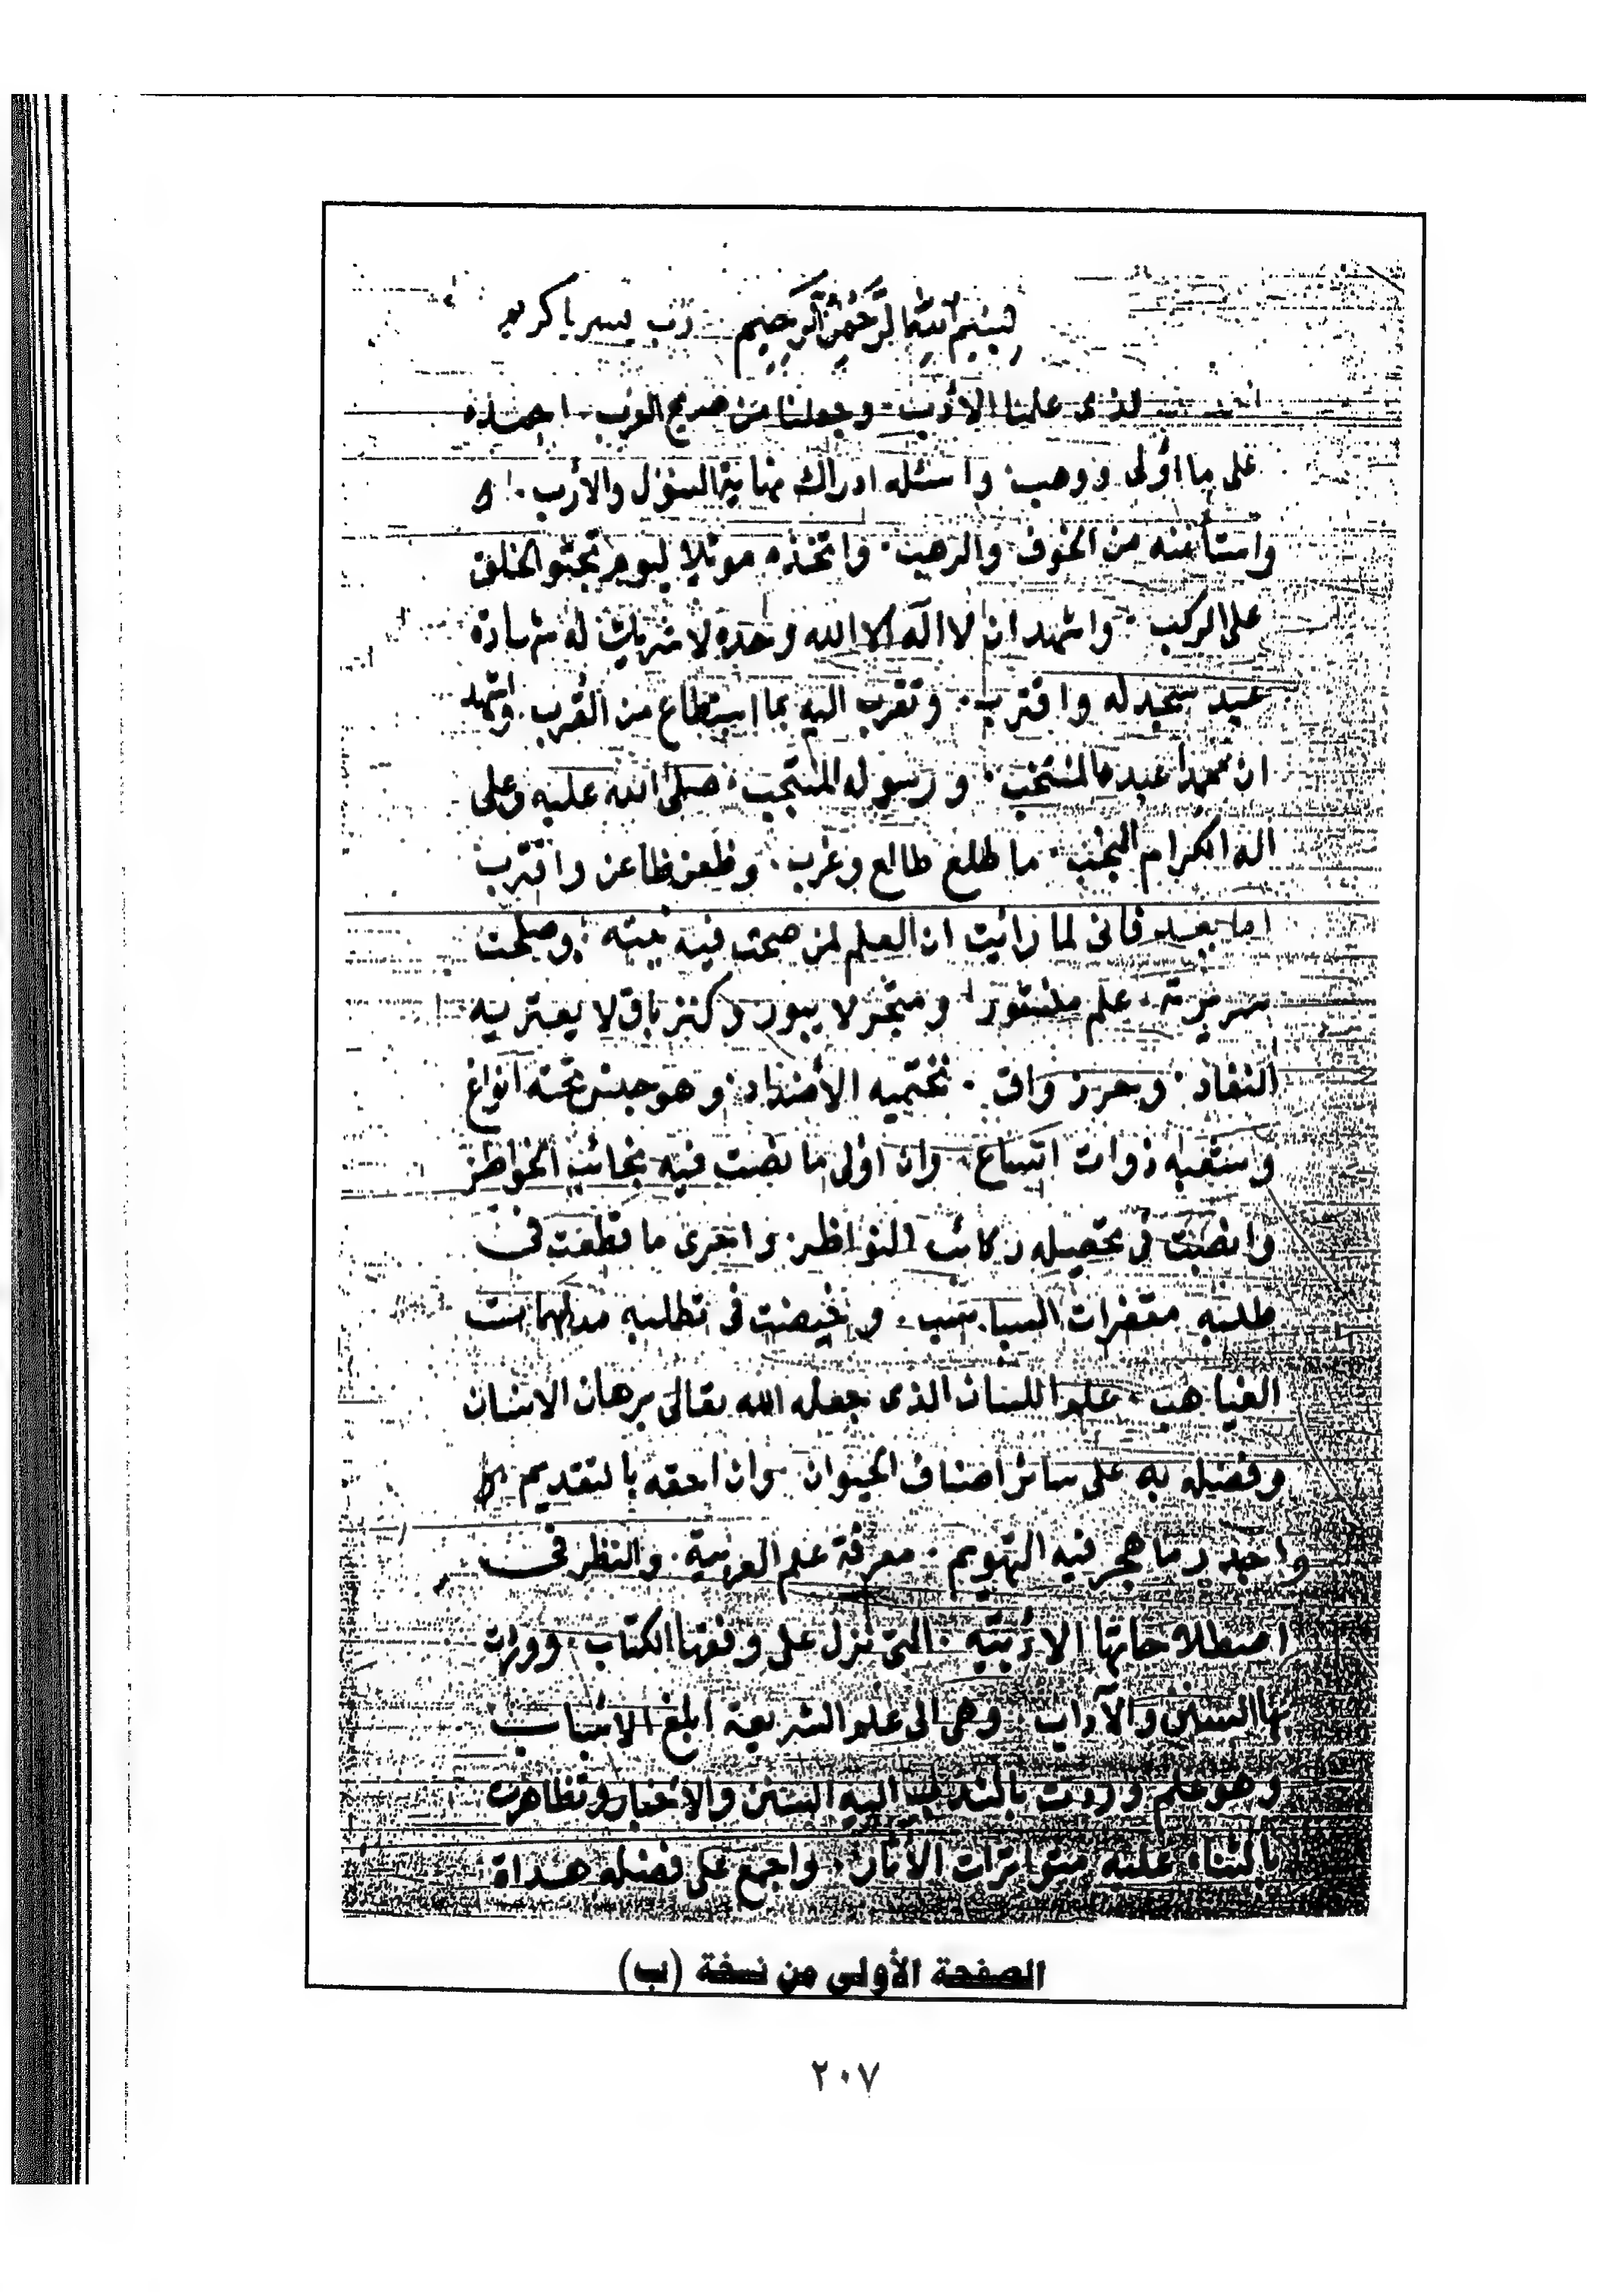 بسم الله الرحمن الرحيم رب يسر يا كريم
لذى علمنا الادب وجعلنا من صريح العرب احمده
على ما أولى ووهب واسئله ادراك نهاية السؤل والأرب
واستأمنه من الخوف والرهب واتخذه موئلا ليوم تجثو الخلق
على الركب واشهد ان لا اله الا الله وحده لا شريك له شهادة
عبد سجد له واقترب وتقرب اليه بما استطاع من القرب واشهد
ان محمدا عبده المنتخب ورسوله المنتجب صلى الله عليه وعلى
اله الكرام النجب ما طلع طالع وغرب وظعن ظاعن واقترب
اما بعد فانى لما رائيت ان العلم لمن صحت فيه نيته وصلحت
سريرته علم منشور ومتجر لا يبور وكنز باق لا يعتريه
النفاد وحرز واق تحتميه الأضداد وهو جنس تحته انواع
وشعبه ذوات اتساع وان اولى ما نضت فيه نجائب الخواطر
وانضبت فى تحصيله ركائب النواظر واحرى ما قطعت فى
طلبه مقفرات السباسب وخيضت فى تطلبه مدلهمات
الغياهب علم اللسان الذى جعله الله تعالى برهان الانسان
وفضله به على سائر اصناف الحيوان وان احقه بالتقديم
واجدر ما هجر فيه التهويم معرفة علم العربية والنظر فى
اصطلاحاتها الادبيه التى نزل على وفقها الكتاب ووردت
بها السنن والآداب وهى الى علم الشريعة ابلغ الاسباب
وهو علم وردت بالندب اليه السنن والأخبار وتظاهرت
بالثناء عليه متواترات الاثار واجمع على فضله هداة
الصفحة الأولى من نسخة (ب)
٢٠٧